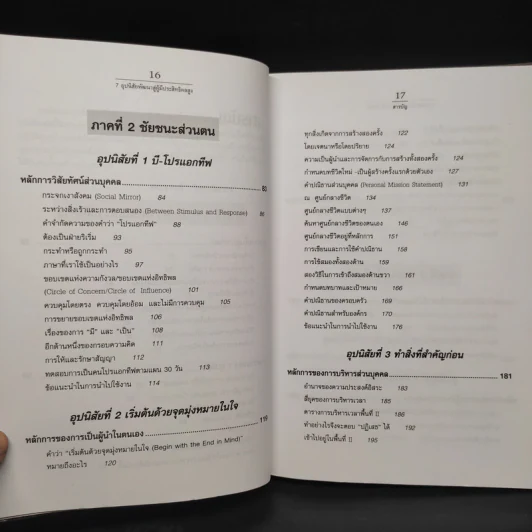 16
7 อุปนิสัยพัฒนาสู่ผู้มีประสิทธิผลสูง
ภาคที่ 2 ชัยชนะส่วนตน
อุปนิสัยที่ 1 บี-โปรแอกทีฟ
หลักการวิสัยทัศน์ส่วนบุคคล 80
กระจกเงาสังคม (Social Mirror) 84
ระหว่างสิ่งเร้าและการตอบสนอง (Between Stimulus and Response) 86
คำจำกัดความของคำว่า "โปรแอกทีฟ" 88
ต้องเป็นฝ่ายริเริ่ม 93
กระทำหรือถูกกระทำ 95
ภาษาที่เราใช้เป็นอย่างไร 97
ขอบเขตแห่งความกังวล/ขอบเขตแห่งอิทธิพล
(Circle of Concern/Circle of Influence) 101
ควบคุมโดยตรง ควบคุมโดยอ้อม และไม่มีการควบคุม 105
การขยายขอบเขตแห่งอิทธิพล 106
เรื่องของการ "มี" และ "เป็น" 108
อีกด้านหนึ่งของกรอบความคิด 111
การให้และรักษาสัญญา 112
ทดสอบการเป็นคนโปรแอกทีฟตามแผน 30 วัน 113
ข้อแนะนำในการนำไปใช้งาน 114
อุปนิสัยที่ 2 เริ่มต้นด้วยจุดมุ่งหมายในใจ
หลักการของการเป็นผู้นำในตนเอง 119
คำว่า "เริ่มต้นด้วยจุดมุ่งหมายในใจ (Begin with the End in Mind)"
หมายถึงอะไร 120
17
สารบัญ
ทุกสิ่งเกิดจากการสร้างสองครั้ง 122
โดยเจตนาหรือโดยปริยาย 124
ความเป็นผู้นำและการจัดการกับการสร้างทั้งสองครั้ง 124
กำหนดบทชีวิตใหม่ -เป็นผู้สร้างครั้งแรกด้วยตัวเอง 127
คำปณิธานส่วนบุคคล (Personal Mission Statement) 131
ณ ศูนย์กลางชีวิต 134
ศูนย์กลางชีวิตแบบต่างๆ 137
ค้นหาศูนย์กลางชีวิตของคนเอง 146
ศูนย์กลางชีวิตอยู่ที่หลักการ 151
การเขียนและการใช้คำปณิธาน 158
การใช้สมองทั้งสองด้าน 159
สองวิธีในการเข้าถึงสมองด้านขวา 161
กำหนดบทบาทและเป้าหมาย 166
คำปณิธานของครอบครัว 169
คำปณิธานสำหรับองค์กร 170
ข้อแนะนำในการนำไปใช้งาน 176
อุปนิสัยที่ 3 ทำสิ่งที่สำคัญก่อน
หลักการของการบริหารส่วนบุคคล 181
อำนาจของความประสงค์อิสระ 183
สี่ยุคของการบริหารเวลา 185
ตารางการบริหารเวลาพื้นที่ II 186
ทำอย่างไรจึงจะตอบ "ปฏิเสธ" ได้ 192
เข้าไปอยู่ในพื้นที่ II 195